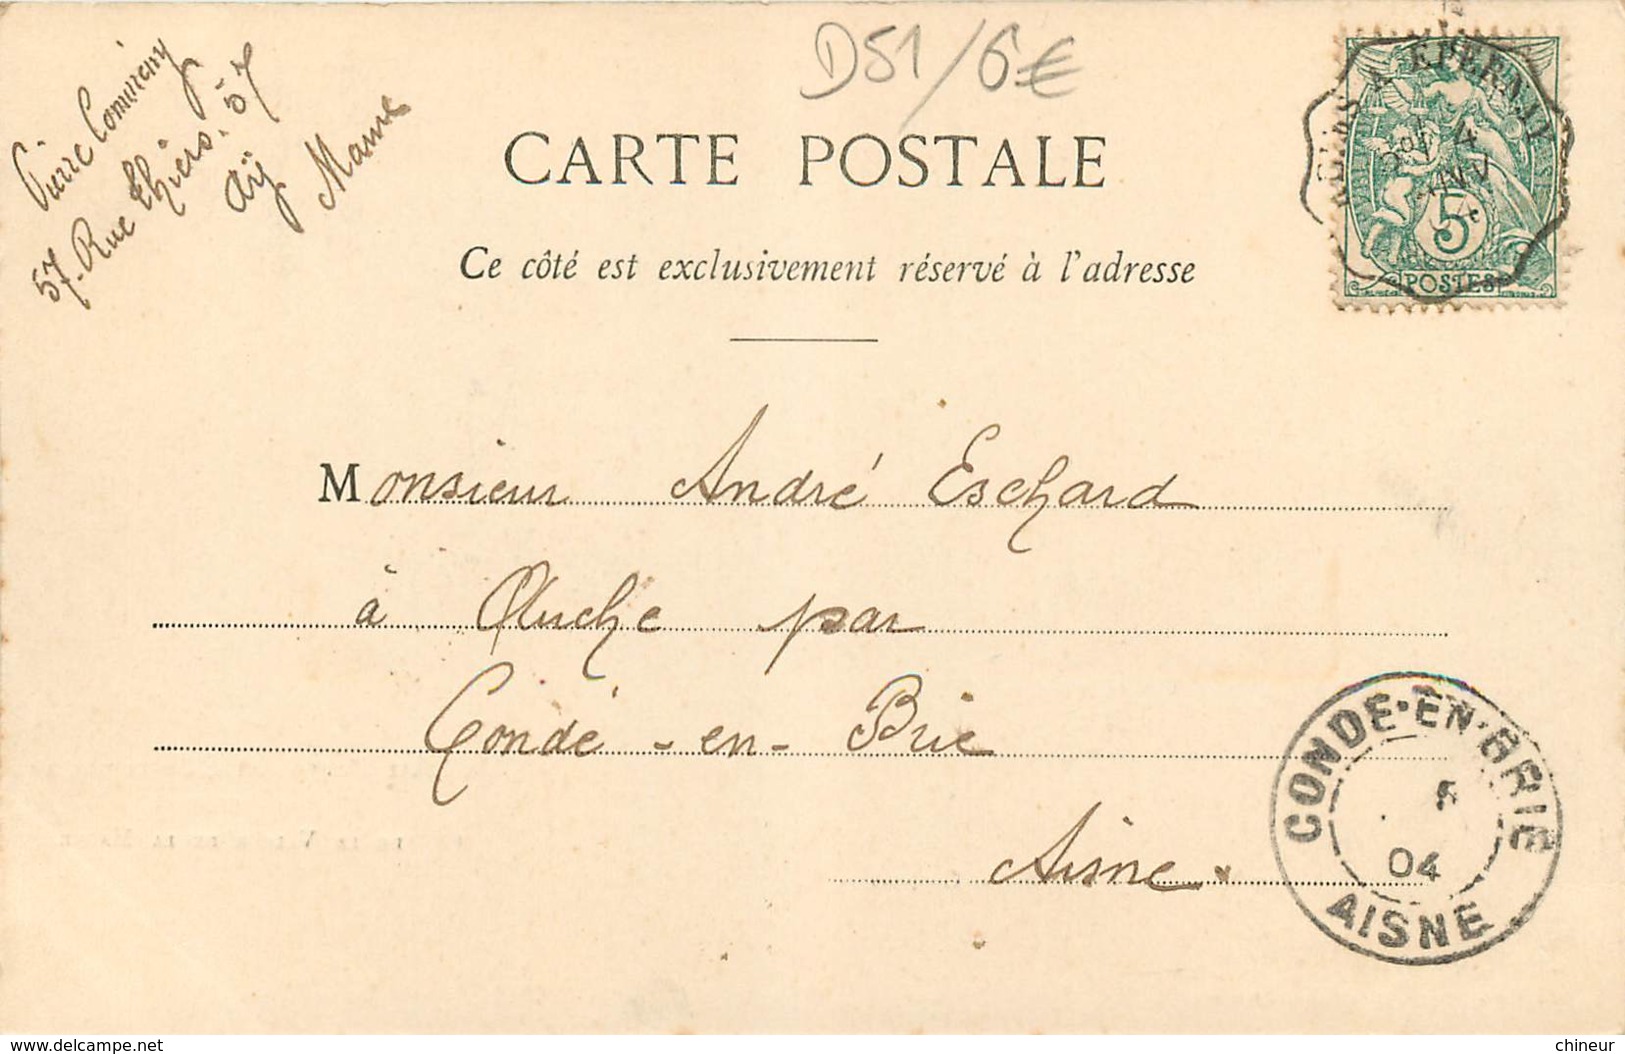 D51/6€
Pierre
57. Rue Thiers. 57
Aÿ
Marne
CARTE POSTALE
Ce côté est exclusivement réservé à l'adresse
EPERNAY
5
POSTES
Monsieur André Eschard
à Cluche par
Condé-en-Brie
Aisne.
CONDE-EN-BRIE
04
AISNE
delcampe.net
chineur